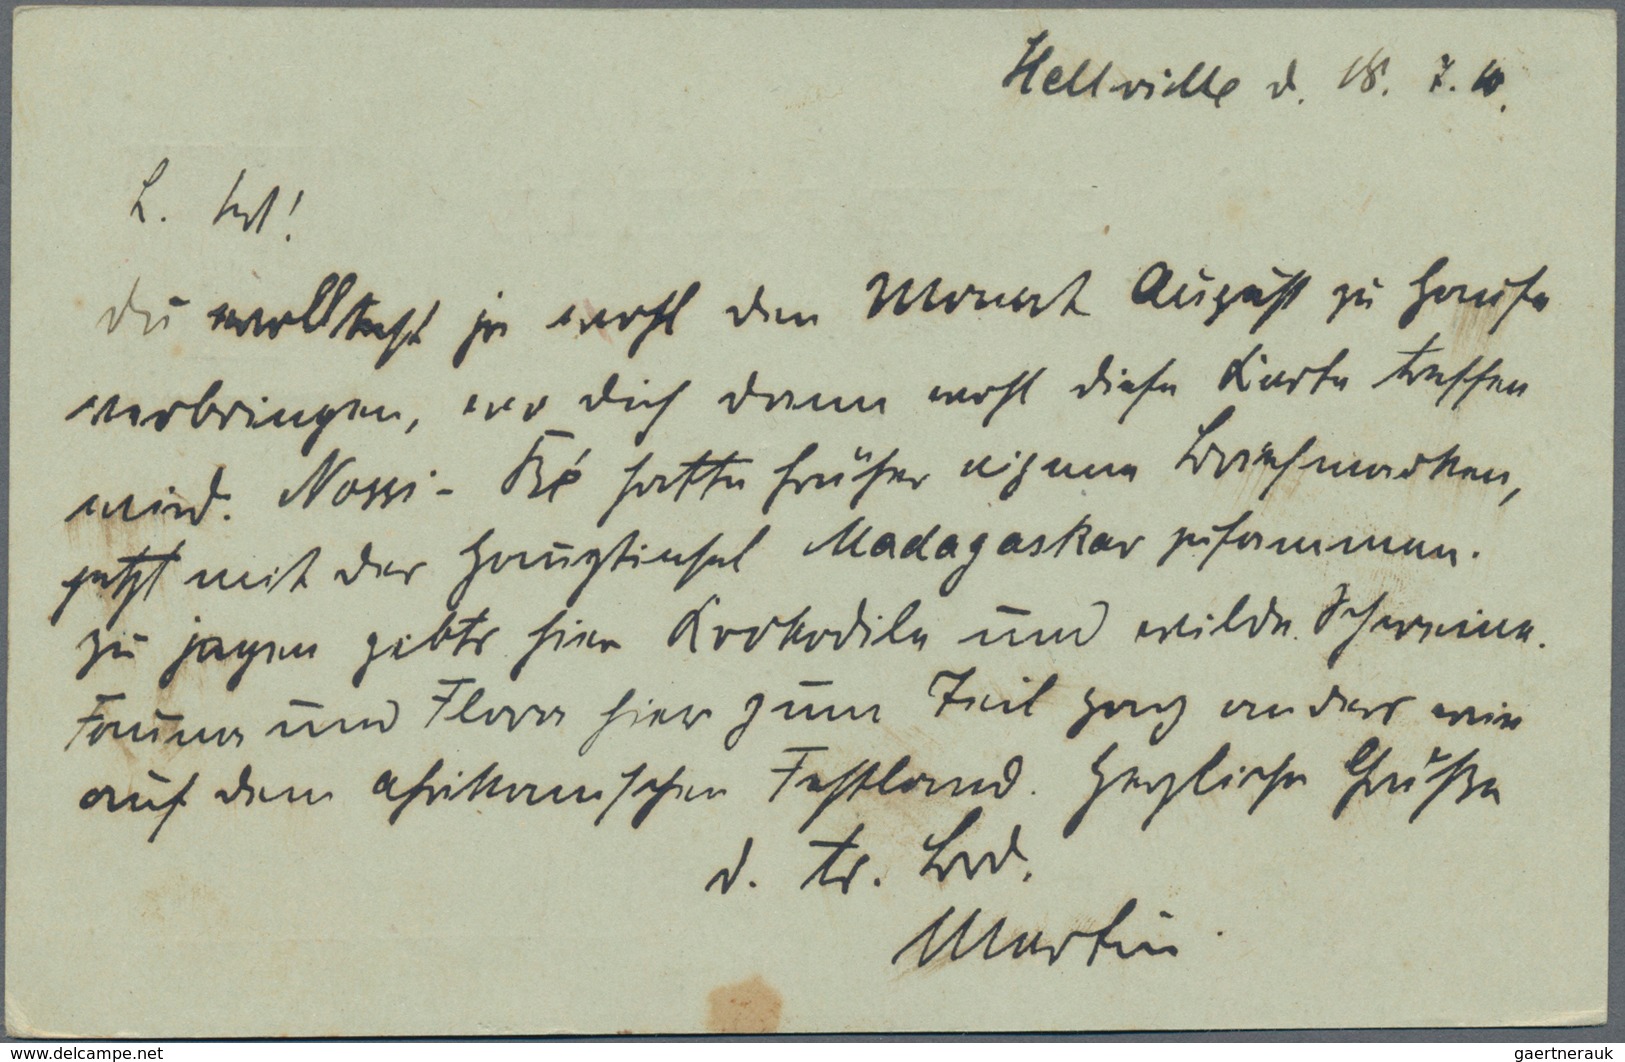 Hellville d. 18. 7. 10.
L.
Du wolltest ja wohl den Monat August zu Hause
verbringen, wo dich dann wohl diese Karte treffen
wird. Nossi-Bé hatte früher eigene Briefmarken,
jetzt mit der Hauptinsel Madagaskar zusammen.
Zu jagen gibts hier Krokodile und wilde Schweine.
Fauna und Flora hier zum Teil ganz anders wie
auf dem afrikanischen Festland. Herzliche Grüße
d. tr. Brd.
Martin
www.delcampe.net
gaertnerauk